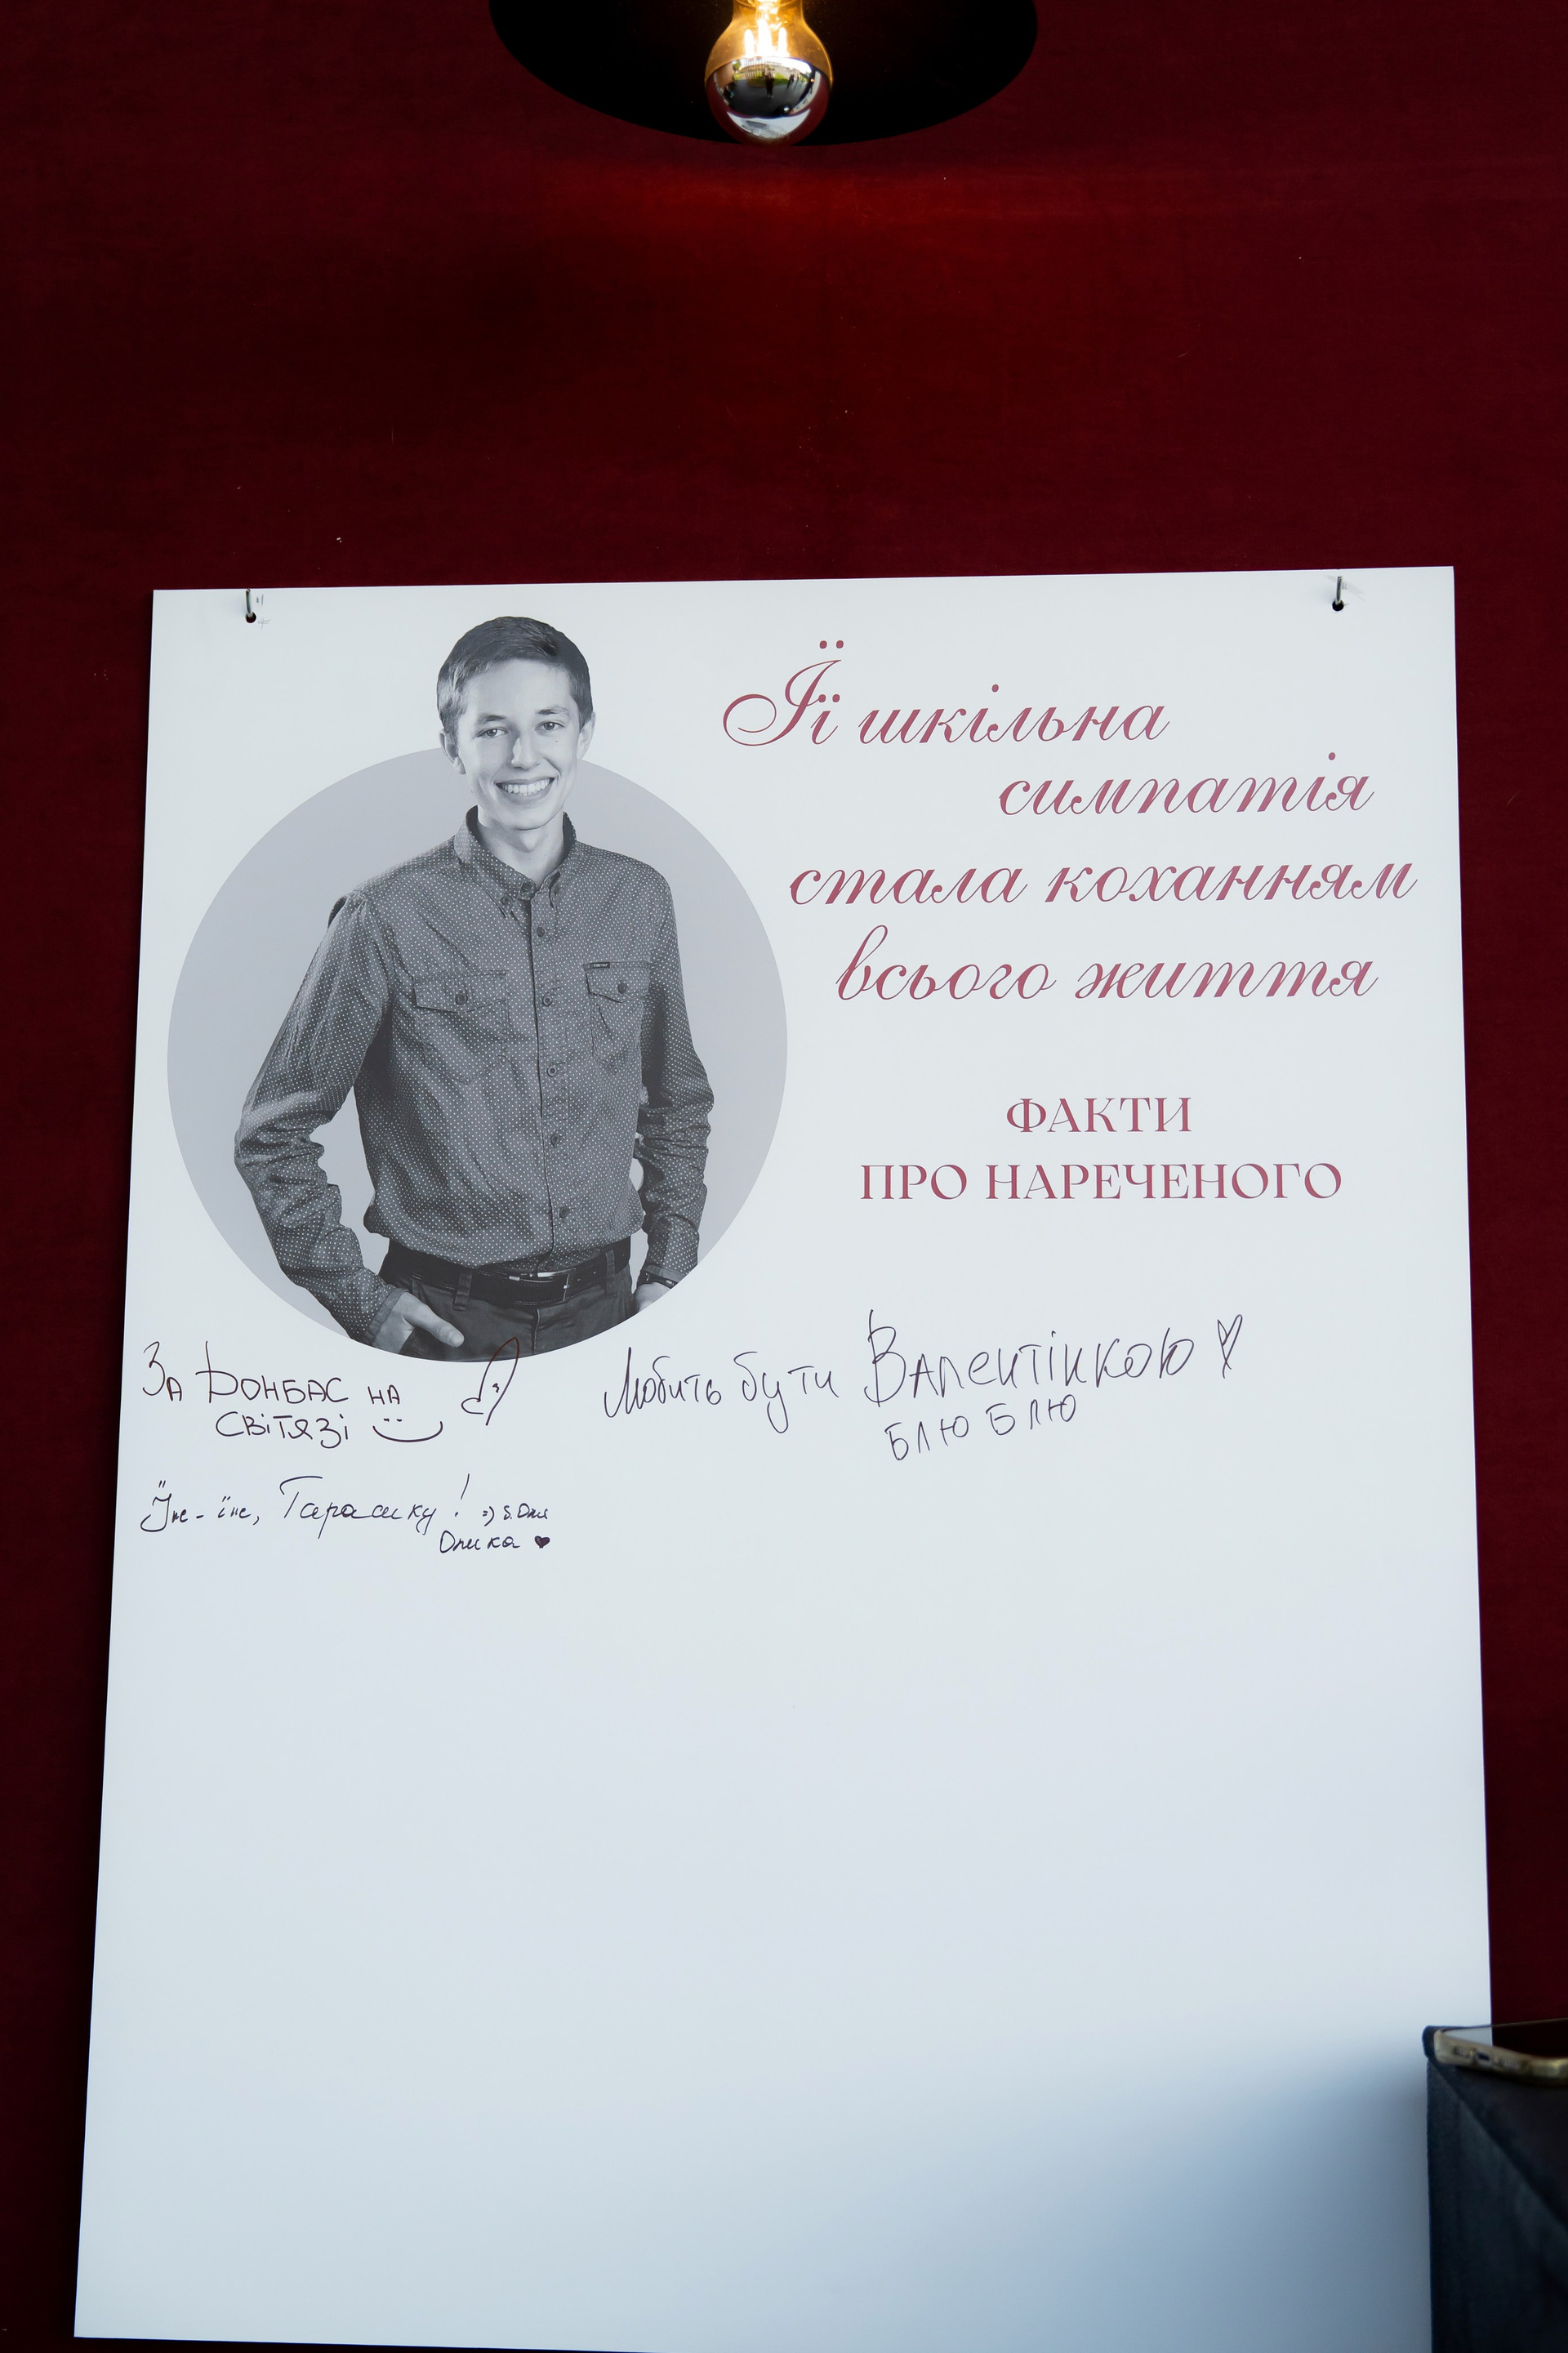 Її шкільна
симпатія
стала коханням
всього життя
ФАКТИ
ПРО НАРЕЧЕНОГО
За Донбас на
Світязі
Любить бути Валентінкою
БЛЮ БЛЮ
Їжс-їжс, Тарасику! =)